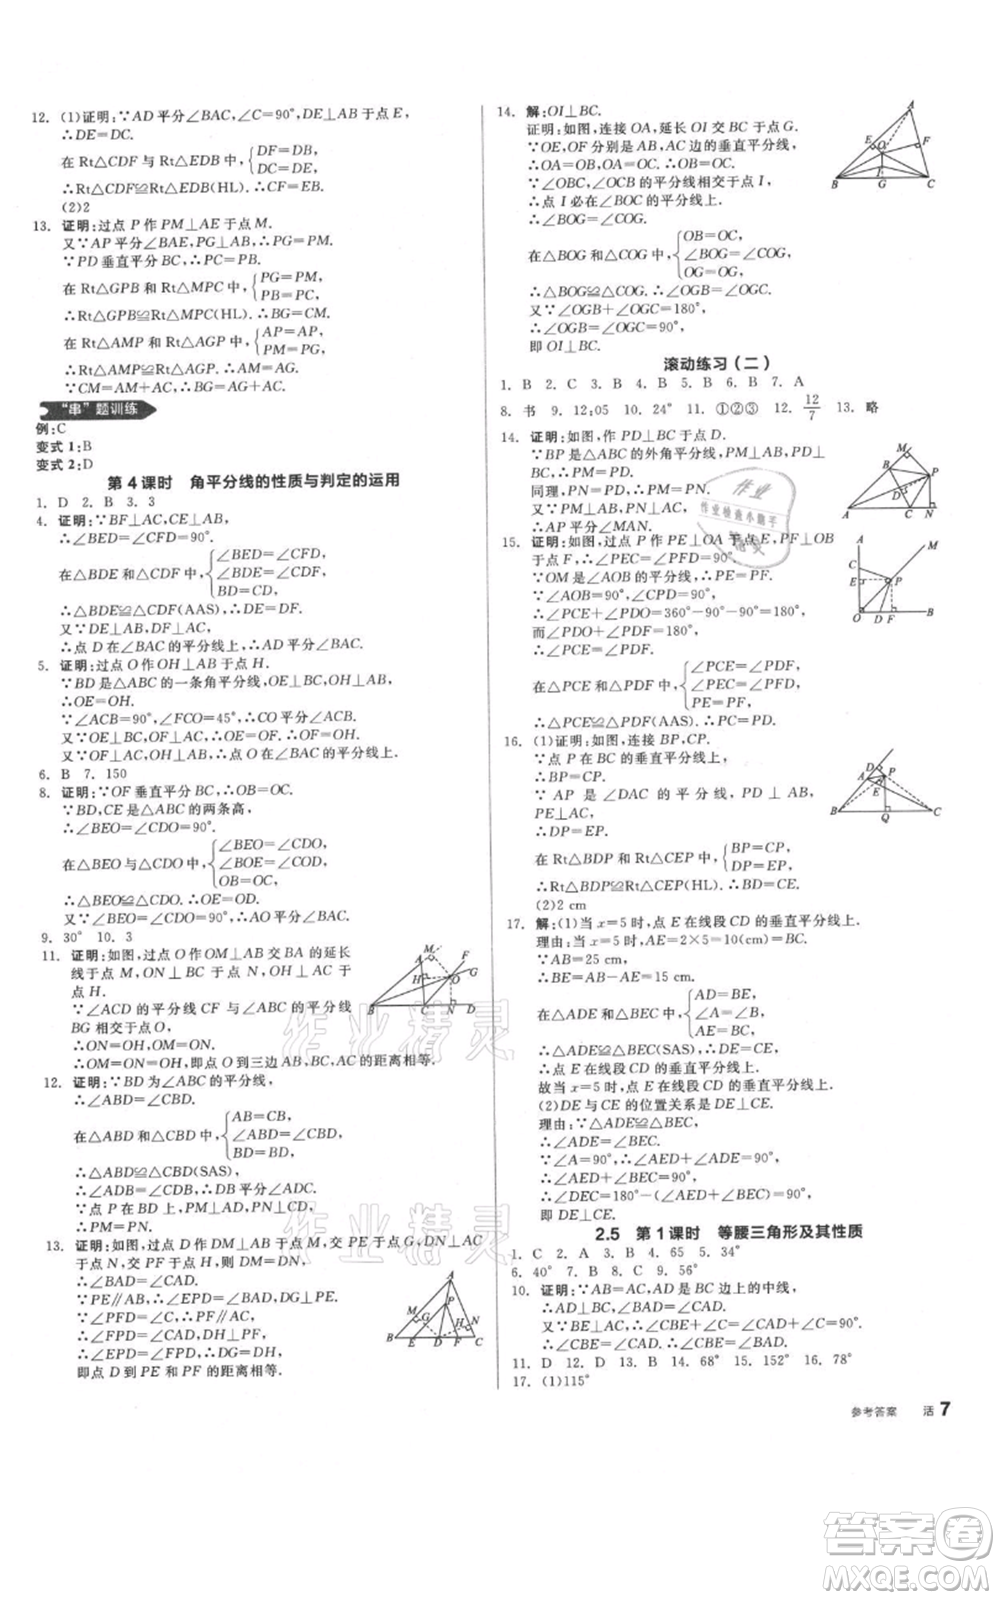 12. (1)证明:∵AD平分∠BAC,∠C=90°,DE⊥AB于点E,
∴DE=DC.
在Rt△CDF与Rt△EDB中,{DF=DB,
DC=DE,
∴Rt△CDF≌Rt△EDB(HL).∴CF=EB.
(2)2
13. 证明:过点P作PM⊥AE于点M.
又∵AP平分∠BAE,PG⊥AB,∴PG=PM.
∵PD垂直平分BC,∴PC=PB.
在Rt△GPB和Rt△MPC中,{PG=PM,
PB=PC,
∴Rt△GPB≌Rt△MPC(HL).∴BG=CM.
在Rt△AMP和Rt△AGP中,{AP=AP,
PM=PG,
∴Rt△AMP≌Rt△AGP.∴AG=AM.
∵CM=AM+AC,∴BG=AG+AC.
“串”题训练
例:C
变式1:B
变式2:D
第4课时 角平分线的性质与判定的运用
1. D 2. B 3. 3
4. 证明:∵BF⊥AC,CE⊥AB,
∴∠BED=∠CFD=90°.
在△BDE和△CDF中,{∠BED=∠CFD,
∠BDE=∠CDF,
BD=CD,
∴△BDE≌△CDF(AAS).∴DE=DF.
又∵DE⊥AB,DF⊥AC,
∴点D在∠BAC的平分线上,∴AD平分∠BAC.
5. 证明:过点O作OH⊥AB于点H.
∵BD是△ABC的一条角平分线,OE⊥BC,
∴OE=OH.
∵∠ACB=90°,∠FCO=45°,∴CO平分∠ACB.
又∵OE⊥BC,OF⊥AC,∴OE=OF.∴OH=OF.
又∵OF⊥AC,∴点O在∠BAC的平分线上.
6. B 7. 150
8. 证明:∵OF垂直平分BC,∴OB=OC.
∵BD,CE是△ABC的两条高,
∴∠BEO=∠CDO=90°.
在△BEO与△CDO中,{∠BEO=∠CDO,
∠BOE=∠COD,
OB=OC,
∴△BEO≌△CDO.∴OE=OD.
又∵∠BEO=∠CDO=90°,∴AO平分∠BAC.
9. 30° 10. 3
11. 证明:如图,过点O作OM⊥AB交BA的延长
线于点M,ON⊥BD于点N,OH⊥AC于
点H.
∵∠ACD的平分线CF与∠ABC的平分线
BG相交于点O,
∴ON=OH,OM=ON.
∴OM=ON=OH,即点O到三边AB,BC,AC的距离相等.
12. 证明:∵BD为∠ABC的平分线,
∴∠ABD=∠CBD.
在△ABD和△CBD中,{AB=CB,
∠ABD=∠CBD,
BD=BD,
∴△ABD≌△CBD(SAS).
∴∠ADB=∠CDB.∴DB平分∠ADC.
又∵点P在BD上,PM⊥AD,PN⊥CD,
∴PM=PN.
13. 证明:如图,过点D作DG⊥AB于点M,交PE于点G,DN⊥AC
于点N,交PF于点H,
∴∠BAD=∠CAD.
∵PE∥AB,∴∠EPD=∠BAD,DG⊥PE.
∵∠PFD=∠C,∴PF∥AC,
∴∠FPD=∠CAD,DH⊥PF.
∴∠EPD=∠FPD.∴DG=DH,
即点D到PE和PF的距离相等.
14. 解:OI⊥BC.
证明:如图,连接OA,延长OI交BC于点G.
∵OE,OF分别是AB,AC边的垂直平分线,
∴OA=OB,OA=OC.∴OB=OC.
∵∠OBC,∠OCB的平分线相交于点I,
∴点I必在∠BOC的平分线上.
∴∠BOG=∠COG.
在△BOG和△COG中,{OB=OC,
∠BOG=∠COG,
OG=OG,
∴△BOG≌△COG.∴∠OGB=∠OGC.
又∵∠OGB+∠OGC=180°,
∴∠OGB=∠OGC=90°,
即OI⊥BC.
滚动练习(二)
1. B 2. C 3. B 4. B 5. B 6. B 7. A
8. 书 9. 12:05 10. 24° 11. ①②③ 12. 12/7 13. 略
14. 证明:如图,作PD⊥BC于点D.
∵BP是∠ABC的外角平分线,PM⊥AB,
∴PM=PD.
同理,PN=PD.∴PM=PN.
又∵PM⊥AB,PN⊥AC,
∴AP平分∠MAN.
15. 证明:如图,过点P作PE⊥OA于点E,PF⊥OB
于点F,∴∠PEC=∠PFD=90°.
∵OM是∠AOB的平分线,∴PE=PF.
∵∠AOB=90°,∠CPD=90°,
∴∠PCE+∠PDO=360°-90°-90°=180°.
而∠PDO+∠PDF=180°,
∴∠PCE=∠PDF.
在△PCE和△PDF中,{∠PCE=∠PDF,
∠PEC=∠PFD,
PE=PF,
∴△PCE≌△PDF(AAS).∴PC=PD.
16. (1)证明:如图,连接BP,CP.
∵点P在BC的垂直平分线上,
∴BP=CP.
∵AP是∠DAC的平分线,PD⊥AB,
PE⊥AC,
∴DP=EP.
在Rt△BDP和Rt△CEP中,{BP=CP,
DP=EP,
∴Rt△BDP≌Rt△CEP(HL).∴BD=CE.
(2)2 cm
17. 解:(1)当x=5时,点E在线段CD的垂直平分线上.
理由:当x=5时,AE=2×5=10(cm)=BC.
∵AB=25 cm,
∴BE=AB-AE=15 cm.
在△ADE和△BEC中,{AD=BE,
∠A=∠B,
AE=BC,
∴△ADE≌△BEC(SAS).∴DE=CE.
故当x=5时,点E在线段CD的垂直平分线上.
(2)DE与CE的位置关系是DE⊥CE.
理由:∵△ADE≌△BEC,
∴∠ADE=∠BEC.
∵∠A=90°,∴∠AED+∠ADE=90°.
∴∠AED+∠BEC=90°.
∴∠DEC=180°-(∠AED+∠BEC)=90°,
即DE⊥CE.
2.5 第1课时 等腰三角形及其性质
1. C 2. A 3. D 4. 65 5. 34°
6. 40° 7. B 8. C 9. 56°
10. 证明:∵AB=AC,AD是BC边上的中线,
∴AD⊥BC.∴∠CAD+∠C=90°.
又∵BE⊥AC,∴∠CBE+∠C=90°.
∴∠CBE=∠CAD.∴∠CBE=∠BAD.
11. D 12. D 13. B 14. 68° 15. 152° 16. 78°
17. (1)115°
参考答案 活7
作业精灵
作业精灵
作业检查小助手
答案圈
MXQE.COM